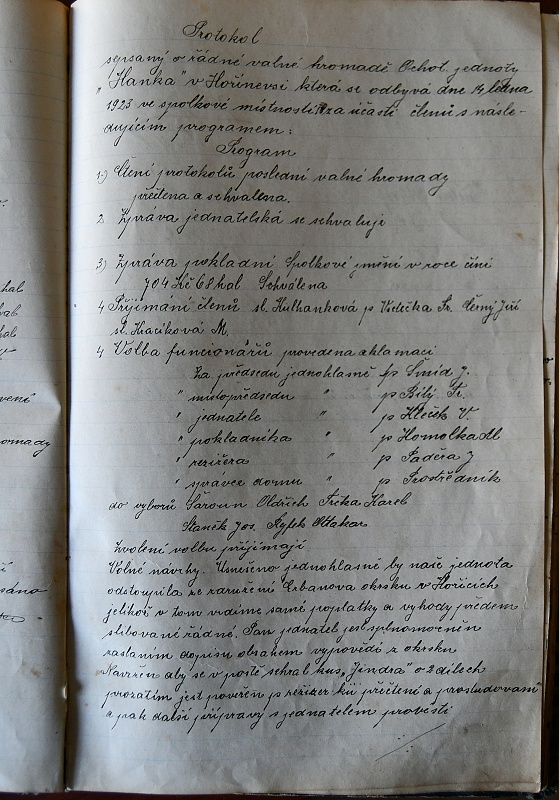 hal
hal
hal
vení
omady
Protokol
sepsaný o řádné valné hromadě Ochot. jednoty
„Hanka" v Hořiněvsi která se odbývá dne 14 ledna
1923 ve spolkové místnosti za účasti členů s násle-
dujícím programem:
Program
1.) Čtení protokolů poslední valné hromady
přečtena a schvalena.
2 Zpráva jednatelská se schvaluje
3) Zpráva pokladní Spolkové jmění v roce činí
704 Kč 68 hal Schválena
4 Přijímání členů sl. Kulhanková p Vodečka Fr. Černý Jiří
sl. Kraciková M.
4 Volba funcionářů provedena aklamací
Za předsedu jednohlasně p Šmíd J.
" místopředsedu " p Bílý Fr.
" jednatele " p Hleček V.
" pokladníka " p Homolka Al
" režizéra " p Paděra J
" správce domu " p Prostředník
do výborů Šároun Oldřich Trčka Karel
Staněk Jos. Rytek Ottakar
Zvolení volbu přijímají
Volné návrhy. Usneseno jednohlasně by naše jednota
odstoupila ze sdružení Erbanova okrsku v Hořicích
jelikož v tom vidíme samé poplatky a vyhody předem
slibované řádné. Pan jednatel jest splnomocněn
zasláním dopisu obsahem vypovědi z okrsku
Navržen aby se v postě sehrál kus „Jindra" o 2 dílech
prozatím jest pověřen p režizer ku přečtení a prostudovaní
a pak další přípravy s jednatelem provésti